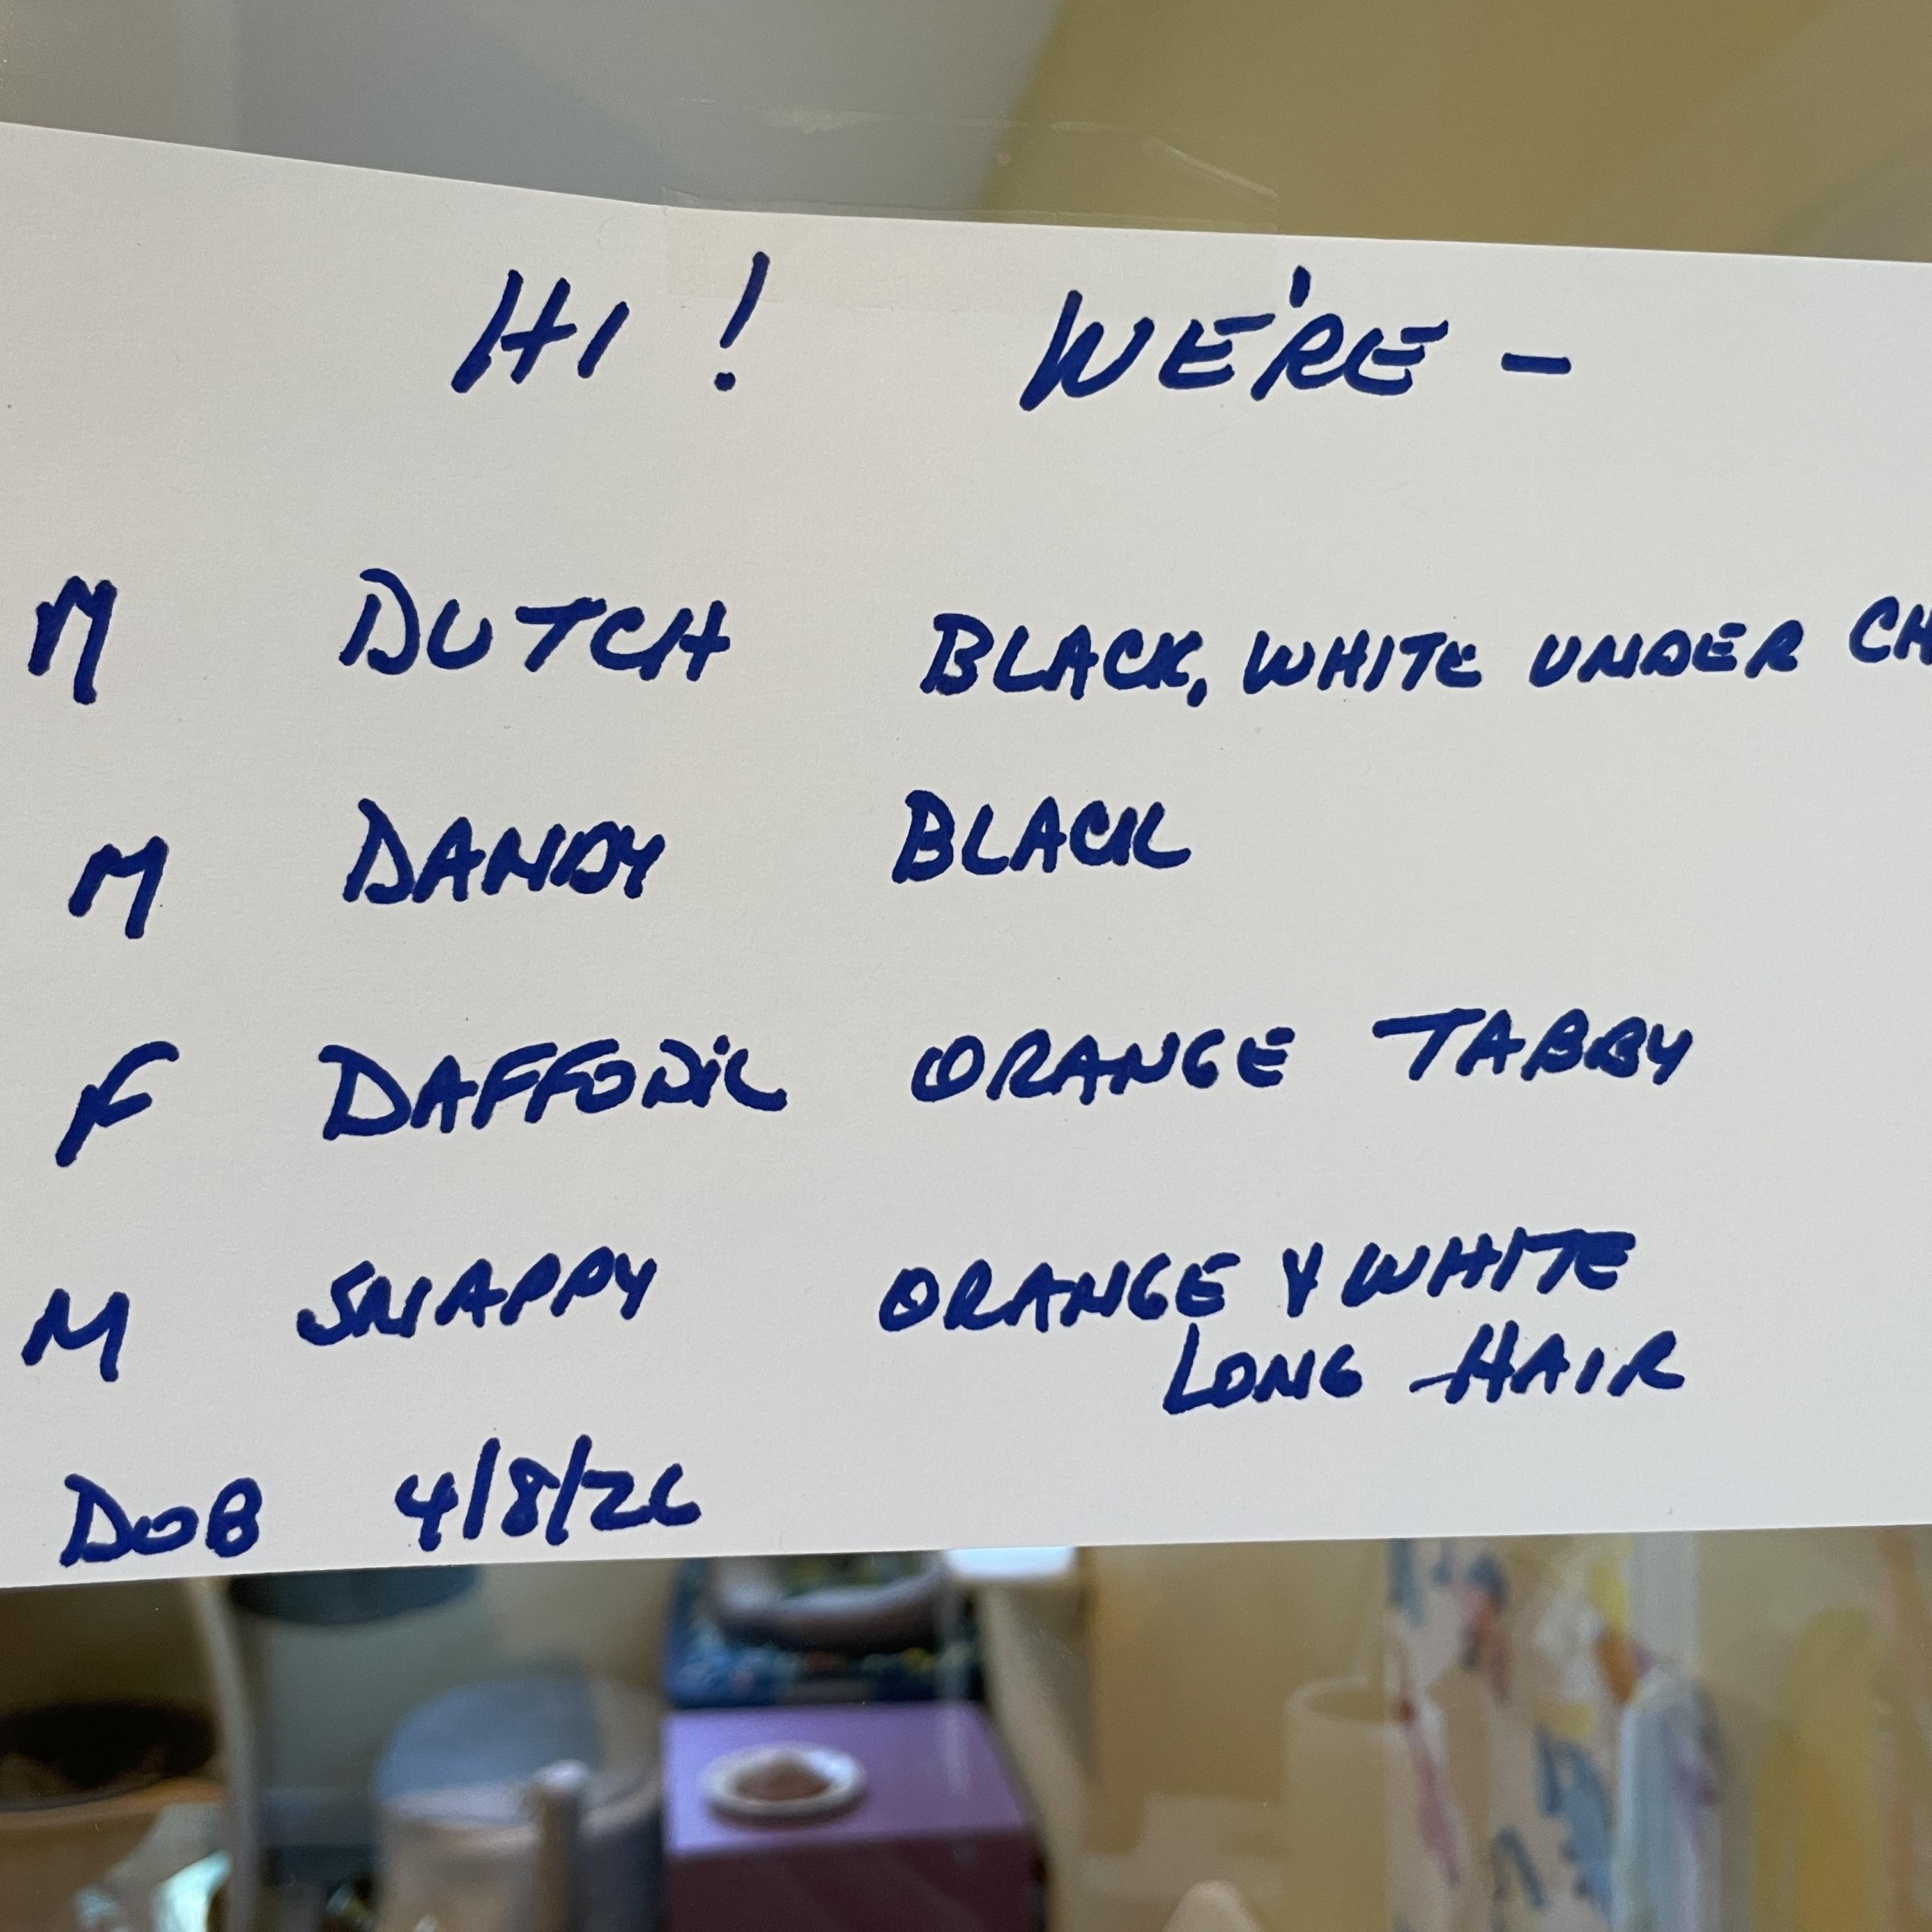 HI! WE'RE -
M DUTCH BLACK, WHITE UNDER CH
M DANDY BLACK
F DAFFODIL ORANGE TABBY
M SNAPPY ORANGE & WHITE
LONG HAIR
DOB 4/8/26